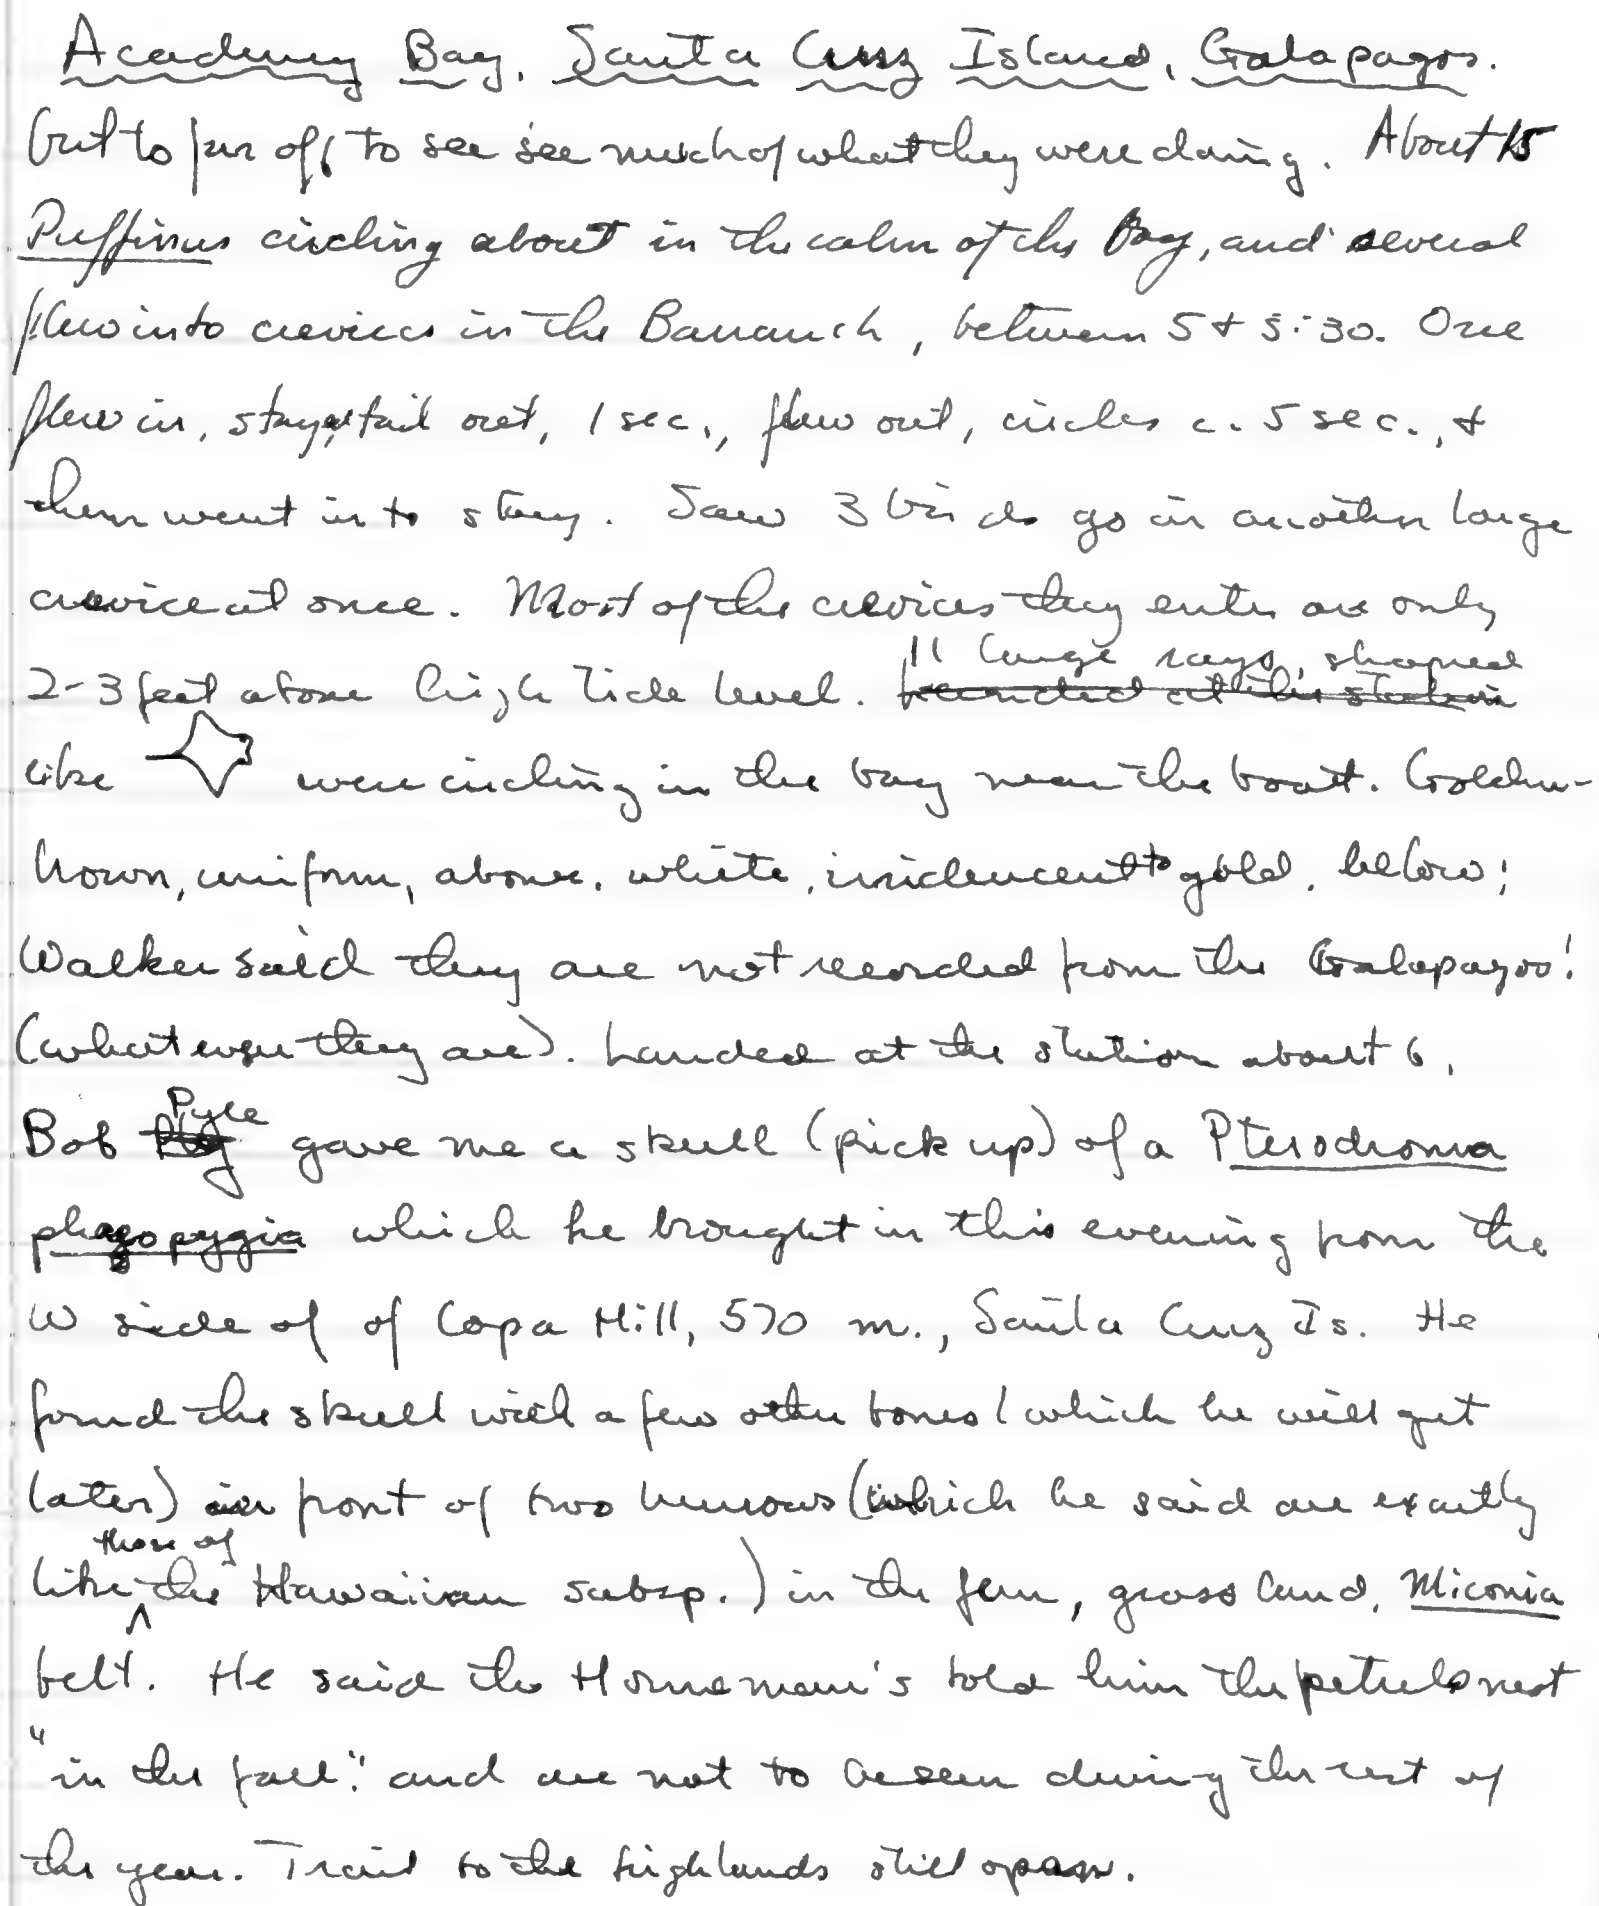 Academy Bay, Santa Cruz Island, Galapagos.
but to far off to see see much of what they were doing. About 15
Puffinus circling about in the calm of the Bay, and several
flew into crevices in the Barranch, between 5 & 5:30. One
flew in, stayed, tail out, 1 sec., flew out, circles c. 5 sec., &
then went in to stay. Saw 3 birds go in another large
crevice at once. Most of the crevices they enter are only
2-3 feet above high tide level. 11 large rays, shaped
like were circling in the bay near the boat. Golden-
brown, uniform, above, white, iridencent to gold, below;
Walker said they are not recorded from the Galapagos!
(what ever they are). Landed at the station about 6.
Bob Pyle gave me a skull (pick up) of a Pterodroma
phaeopygia which he brought in this evening from the
W side of of Copa Hill, 570 m., Santa Cruz Is. He
found the skull with a few other bones (which he will get
later) in front of two burrows (which he said are exactly
like those of the Hawaiian subsp.) in the fern, grass land, Miconia
belt. He said the Horneman's told him the petrels nest
"in the fall", and are not to be seen during the rest of
the year. Trail to the highlands still open.